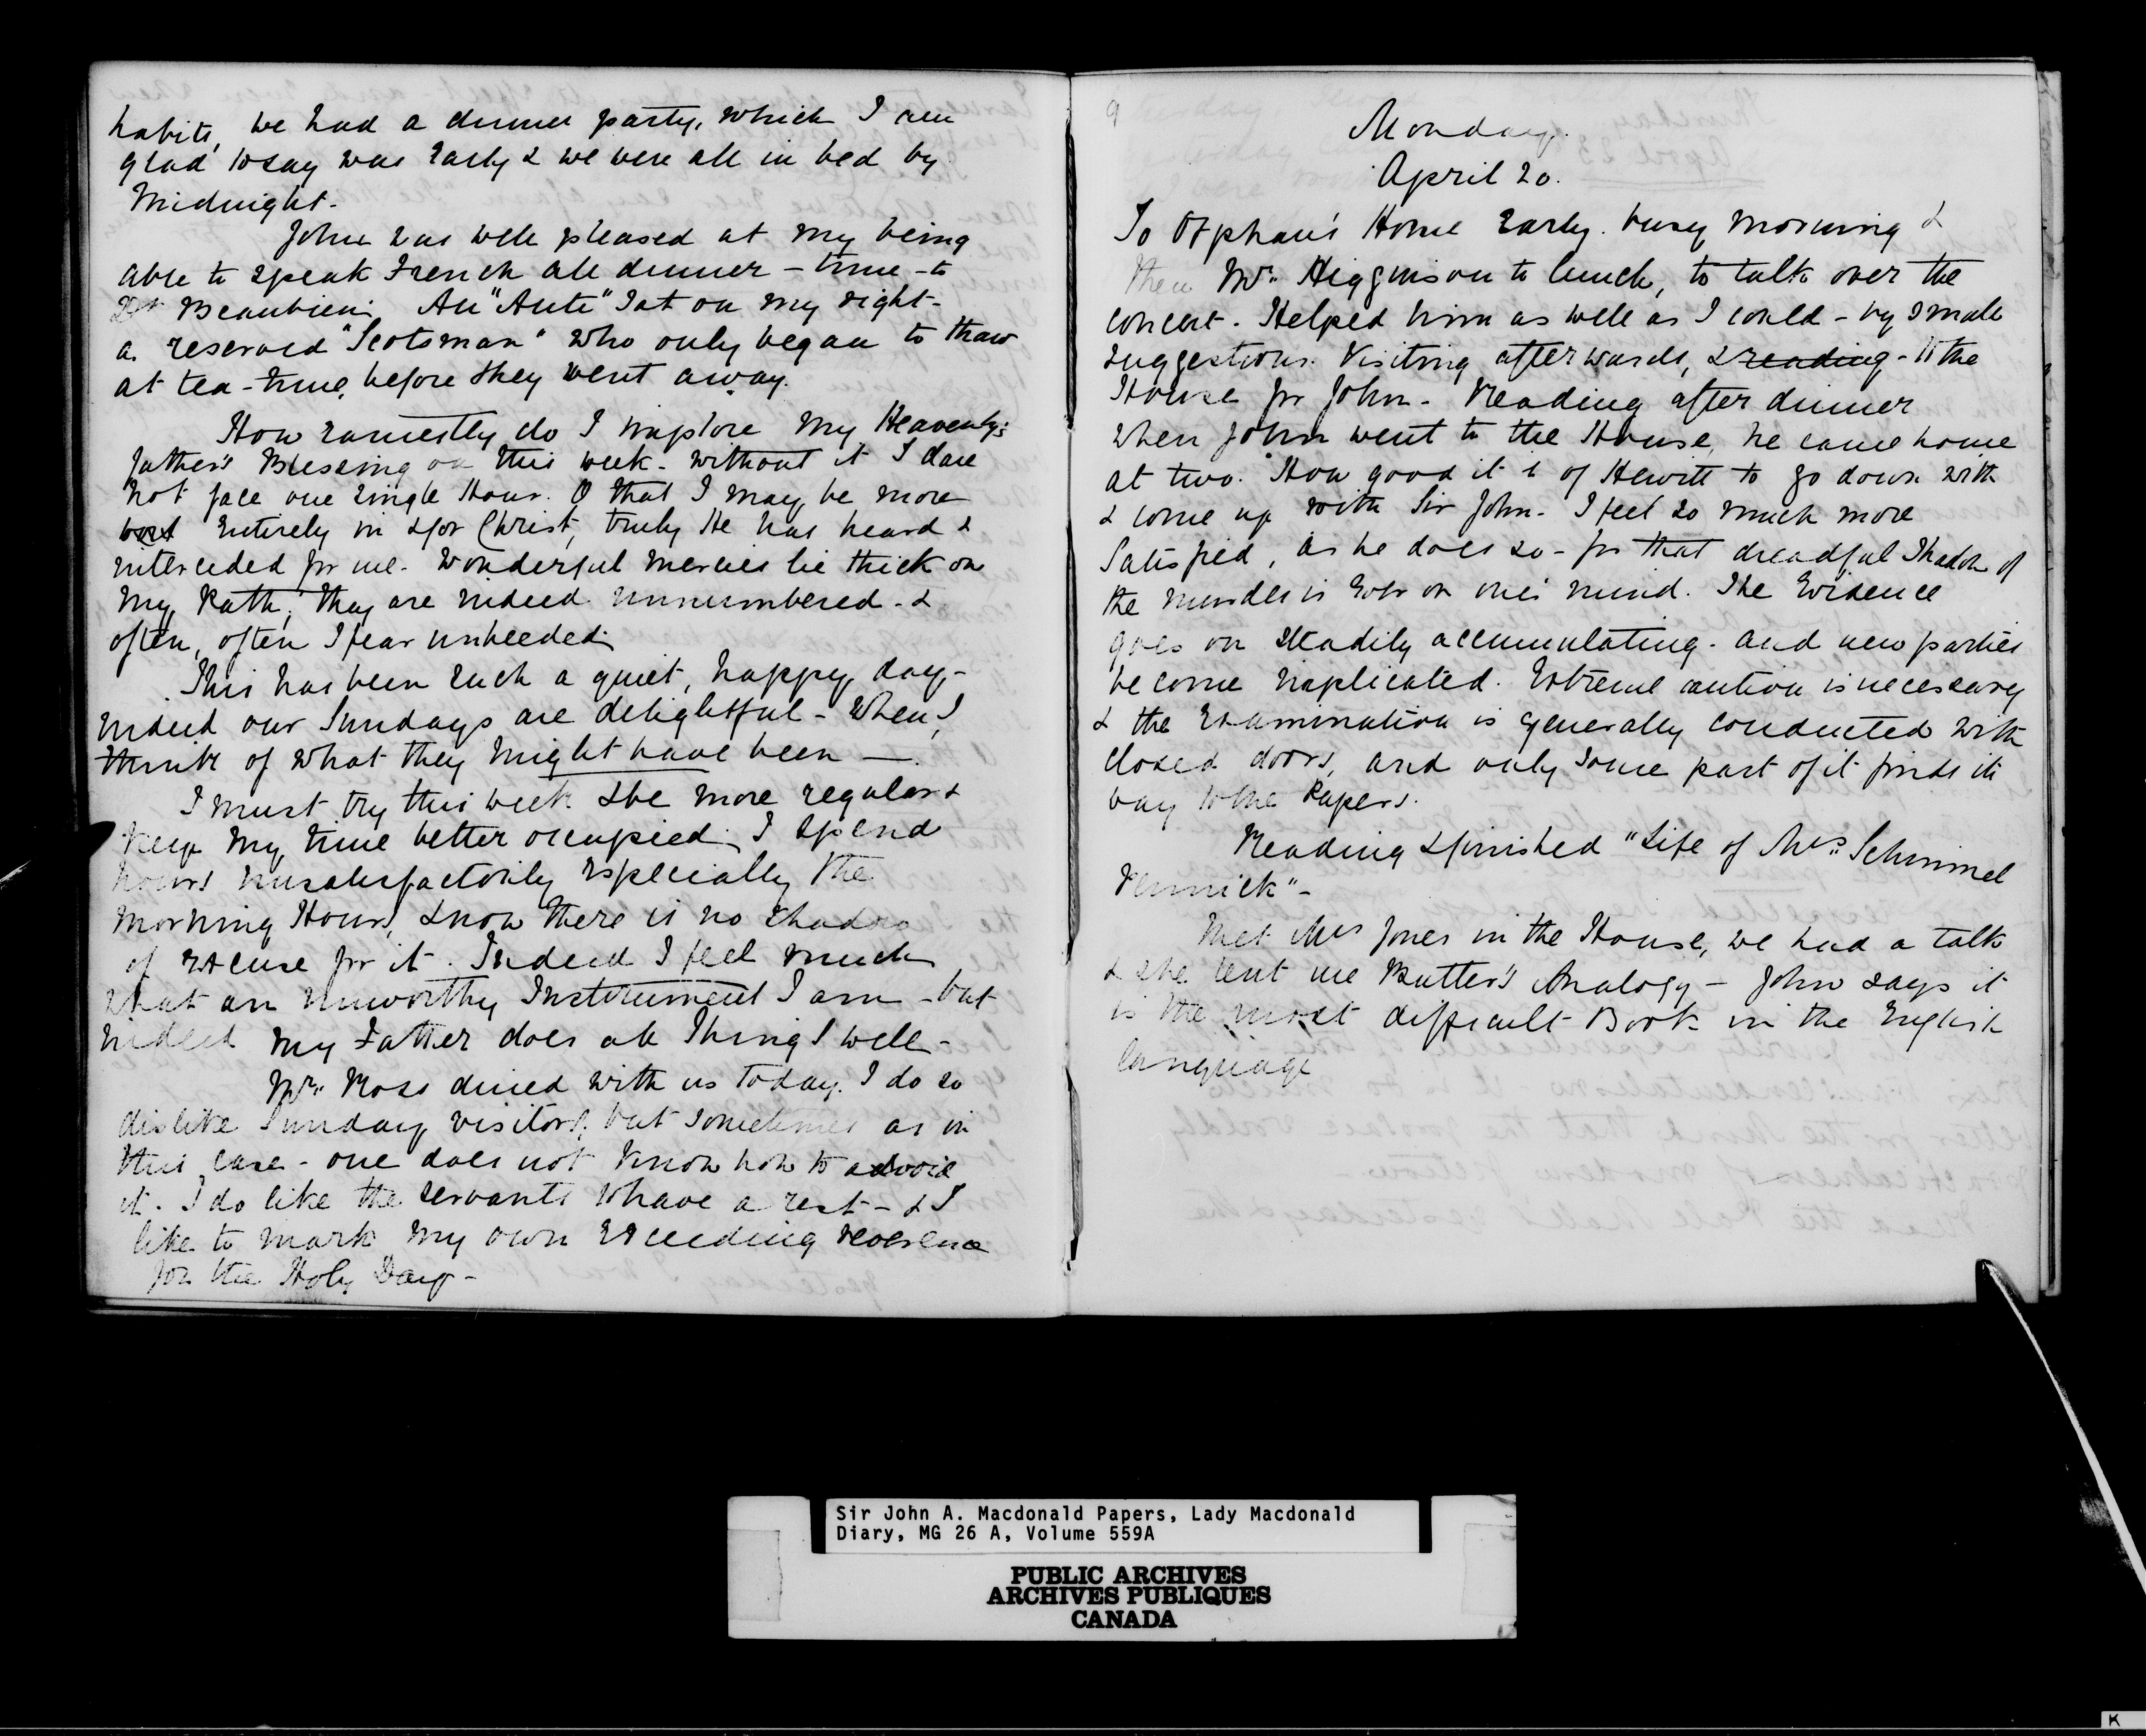 habits, we had a dinner party, which I am
glad to say was early & we were all in bed by
Midnight.
John was well pleased at my being
able to speak French all dinner-time - to
Dr. Beaubien. An "Ante" sat on my right -
a reserved "Scotsman" who only began to thaw
at tea-time, before they went away.
How earnestly do I implore my Heavenly
Father's Blessing on this week - without it I dare
not face one single Hour. O that I may be more
entirely in & for Christ, truly He has heard &
interceded for me. Wonderful mercies lie thick on
my Path, they are indeed unnumbered - &
often, often I fear unheeded.
This has been such a quiet, happy, day -
indeed our Sundays are delightful - When I
think of what they might have been —.
I must try this week to be more regular &
keep my time better occupied. I spend
hours unsatisfactorily especially the
morning Hours, & now there is no shadow
of excuse for it. Indeed I feel much
what an unworthy Instrument I am - but
indeed my Father does all Things well -
Mr. Ross dined with us today. I do so
dislike Sunday visitors, but sometimes as in
this case - one does not know how to avoid
it. I do like the servants to have a rest - & I
like to mark my own exceeding reverence
for the Holy Day -
9
Monday.
April 20.
To Orphan's Home early. busy morning &
then Mr. Higginson to lunch, to talk over the
concert. Helped him as well as I could - by small
suggestions. Visiting afterwards, & reading - to the
House for John. Reading after dinner
when John went to the House, he came home
at two. How good it is of Hewitt to go down with
& come up with Sir John. I feel so much more
satisfied, as he does so - for that dreadful Shadow of
the murder is ever on one's mind. The Evidence
goes on steadily accumulating - and new parties
become implicated. Extreme caution is necessary
& the Examination is generally conducted with
closed doors, and only some part of it finds its
way to the Papers.
Reading & finished "Life of Mrs. Schimmel
Pennick" -
Met Mrs Jones in the House, we had a talk
& she lent me Butler's Analogy - John says it
is the most difficult Book in the English
language
Sir John A. Macdonald Papers, Lady Macdonald
Diary, MG 26 A, Volume 559A
PUBLIC ARCHIVES
ARCHIVES PUBLIQUES
CANADA
K